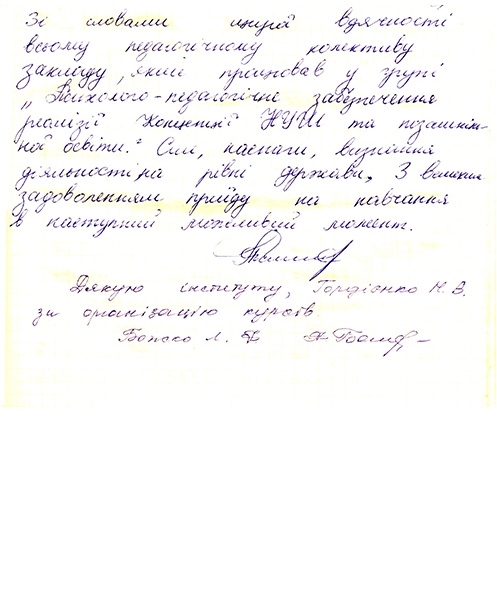 Зі словами щирої вдячності
всьому педагогічному колективу
закладу, який працював у групі
„Психолого-педагогічне забезпечення
реалізії Концепції НУШ та позашкіль-
ної освіти." Сил, наснаги, визнання
діяльності на рівні держави. З великим
задоволенням прийду на навчання
в наступний можливий момент.
Дякую інституту, Гордієнко Н. В.
за організацію курсів
Божко Л.